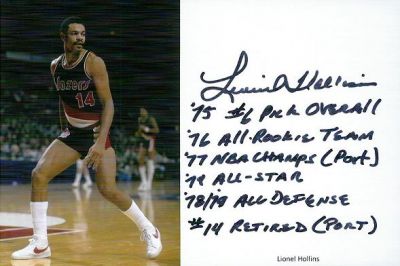 lazers
14
Lionel Hollins
'75 #6 Pick Overall
'76 All-Rookie Team
'77 NBA Champs (Port)
'78 All-Star
'78/'79 All Defense
#14 Retired (Port)
Lionel Hollins